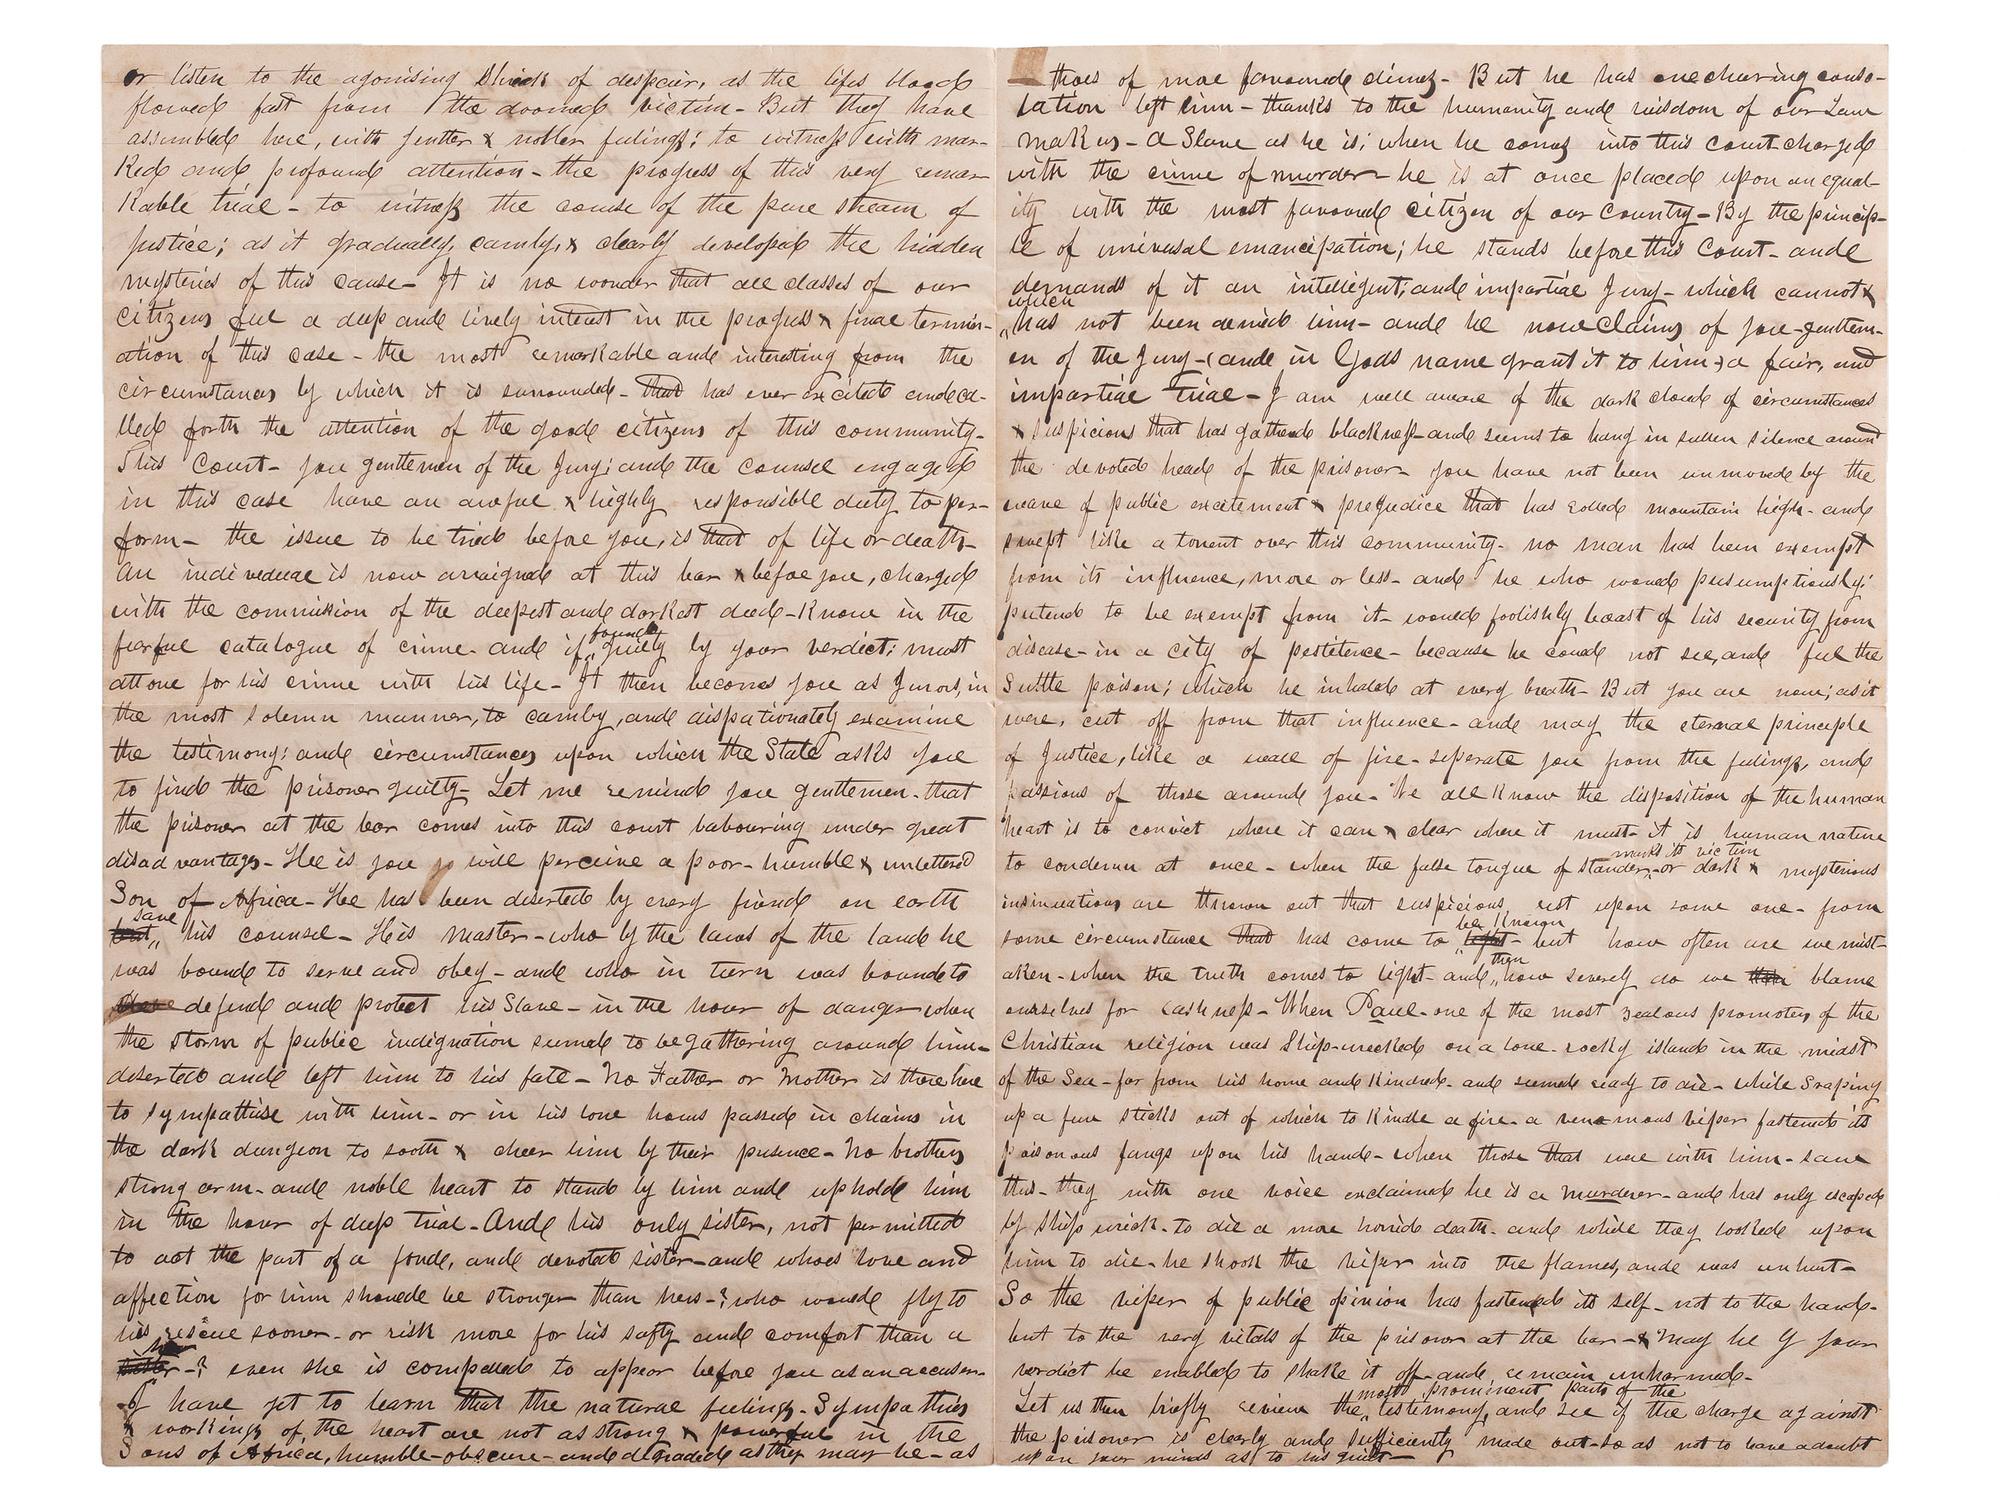 or listen to the agonising Shriek of despair, as the lifes blood
flowed fast from the doomed victim - But they have
assembled here, with gentler & nobler feelings; to witness with mar-
ked and profound attention - the progress of this very remar
kable trial - to witness the course of the pure stream of
justice; as it gradually, camly, & clearly developed the hidden
mysteries of this cause - It is no wonder that all classes of our
citizens feel a deep and lively interest in the progress & final termin-
ation of this case - the most remarkable and interesting from the
circumstances by which it is surrounded - that has ever excited and ca-
lled forth the attention of the good citizens of this community -
This Court - you gentlemen of the Jury; and the counsel engaged
in this case have an awful & highly responsible duty to per-
form - the issue to be tried before you, is that of life or death -
An individual is now arraigned at this bar & before you, charged
with the commission of the deepest and darkest deed - Know in the
fearful catalogue of crime - and if found guilty by your verdict; must
attone for his crime with his life - It then becomes you as Jurors, in
the most solemn manner, to camly, and dispationately examine
the testimony; and circumstances upon which the State asks you
to find the prisoner guilty - Let me remind you gentlemen - that
the prisoner at the bar comes into this court labouring under great
disadvantages - He is you will perceive a poor - humble & unlettered
Son of Africa - He has been deserted by every friend on earth
save his counsel - His master - who by the laws of the land he
was bound to serve and obey - and who in turn was bound to
defend and protect his Slave - in the hour of danger when
the storm of public indignation seemed to be gathering around him -
deserted and left him to his fate - No Father or Mother is there here
to sympathise with him - or in his lone hours passed in chains in
the dark dungeon to sooth & cheer him by their presence - No brothers
strong arm - and noble heart to stand by him and uphold him
in the hour of deep trial - And his only sister, not permitted
to act the part of a fond, and devoted sister - and whoes love and
affection for him should be stronger than hers - ? who would fly to
his rescue sooner - or risk more for his safty and comfort than a
sister - ? even she is compelled to appear before you as an accuser -
I have yet to learn that the natural feelings - Sympathies
& workings of the heart are not as strong & powerful in the
Sons of Africa, humble - obscure - and degraded as they may be - as
thoes of more favoured climes - But he has one chearing conso-
lation left him - thanks to the humanity and wisdom of our Law
makers - A Slave as he is; when he comes into this court charged
with the crime of murder - he is at once placed upon an equal-
ity with the most favoured citizen of our Country - By the princip-
le of universal emancipation; he stands before this Court - and
demands of it an intelligent, and impartial Jury - which cannot &
which has not been denied him - and he now claims of you - gentlem-
en of the Jury - (and in Gods name grant it to him) a fair, and
impartial Trial - I am well aware of the dark cloud of circumstances
& suspicions that has gathered blackness - and seems to hang in sullen silence around
the devoted head of the prisoner - you have not been unmoved by the
wave of public excitement & prejudice that has rolled mountain high - and
swept like a torrent over this community - no man has been exempt
from its influence, more or less - and he who would presumptiously;
pretend to be exempt from it - would foolishly boast of his security from
disease - in a city of pestilence - because he could not see, and feel the
Subtle poison; which he inhaled at every breath - But you are now; as it
were, cut off from that influence - and may the eternal principle
of Justice, like a wall of fire - seperate you from the feelings, and
passions of those around you - We all know the disposition of the human
heart is to convict where it can & clear where it must - it is human nature
to condemn at once - when the false tongue of slander marks its victim - or dark & mysterious
insinuations are thrown out that suspicions rest upon some one - from
some circumstance that has come to be known - but how often are we mist-
aken - when the truth comes to light - and then how severely do we blame
ourselves for rashness - When Paul - one of the most zealous promoters of the
Christian religion was Ship-wrecked on a lone - rocky island in the midst
of the Sea - far from his home and kindred - and seemed ready to die - while Scraping
up a few sticks out of which to kindle a fire - a venomous viper fastened its
poisonous fangs upon his hand - when those that were with him - saw
this - they with one voice exclaimed he is a murderer - and has only escaped
by Ship wrick - to die a more horrid death - and while they looked upon
him to die - he shook the viper into the flames, and was unhurt -
So the viper of public opinion has fastened its self - not to the hand -
but to the very vitals of the prisoner at the bar - & may he by your
verdict be enabled to shake it off - and remain unharmed -
Let us then briefly review the most prominent parts of the testimony, and see if the charge against
the prisoner is clearly and sufficiently made out - so as not to leave a doubt
upon your minds as to his guilt -